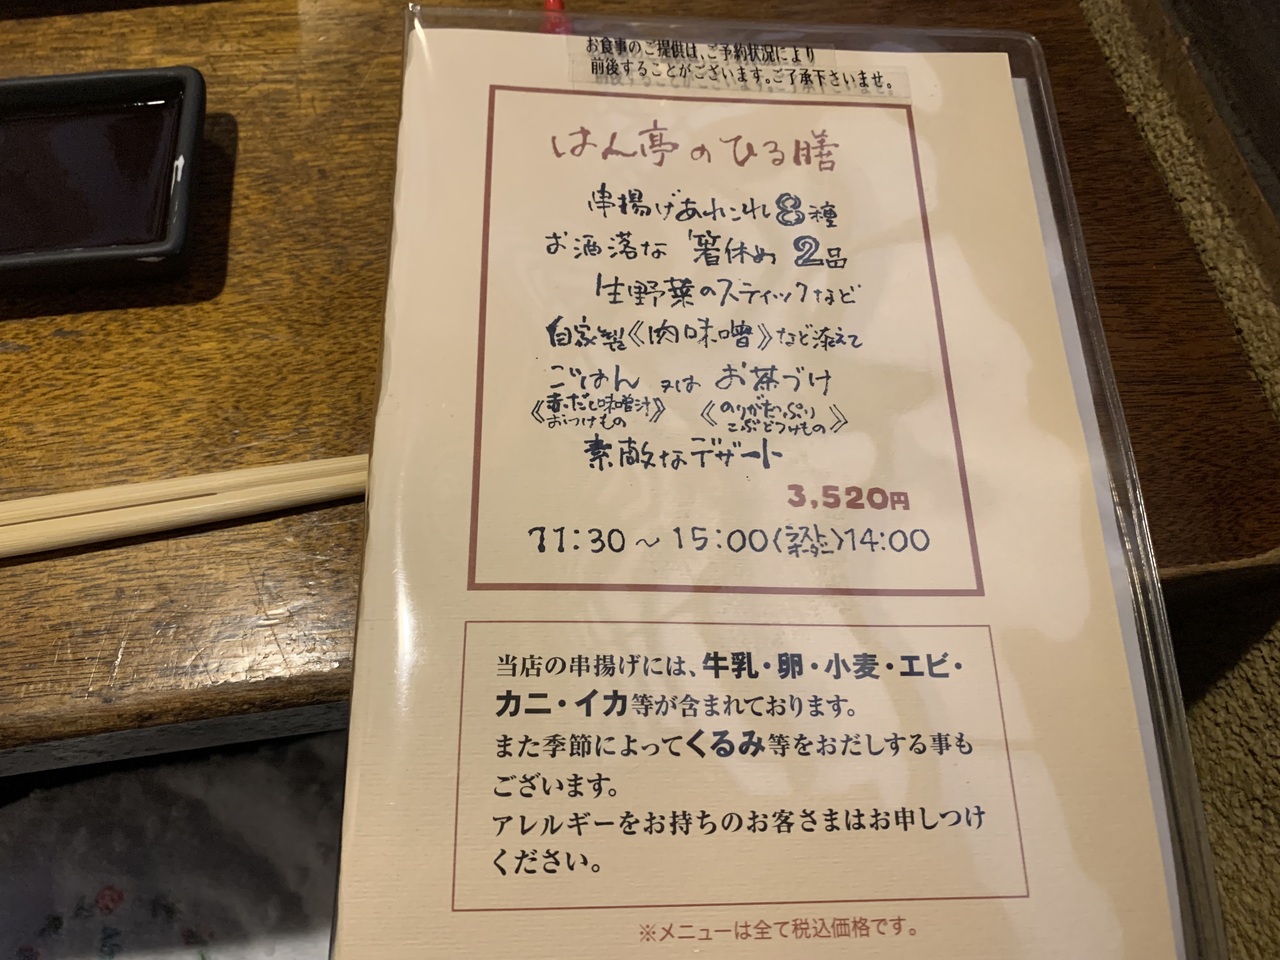 お食事のご提供は、ご予約状況により
前後することがございます。ご了承下さいませ。
はん亭のひる膳
串揚げあれこれ8種
お洒落な箸休め2品
生野菜のスティックなど
自家製《肉味噌》など添えて
ごはん 又は お茶づけ
《赤だし味噌汁 おつけもの》 《のりがたっぷり こぶとつけもの》
素敵なデザート
3,520円
11:30～15:00(ラストオーダー)14:00
当店の串揚げには、牛乳・卵・小麦・エビ・
カニ・イカ等が含まれております。
また季節によってくるみ等をおだしする事も
ございます。
アレルギーをお持ちのお客さまはお申しつけ
ください。
※メニューは全て税込価格です。